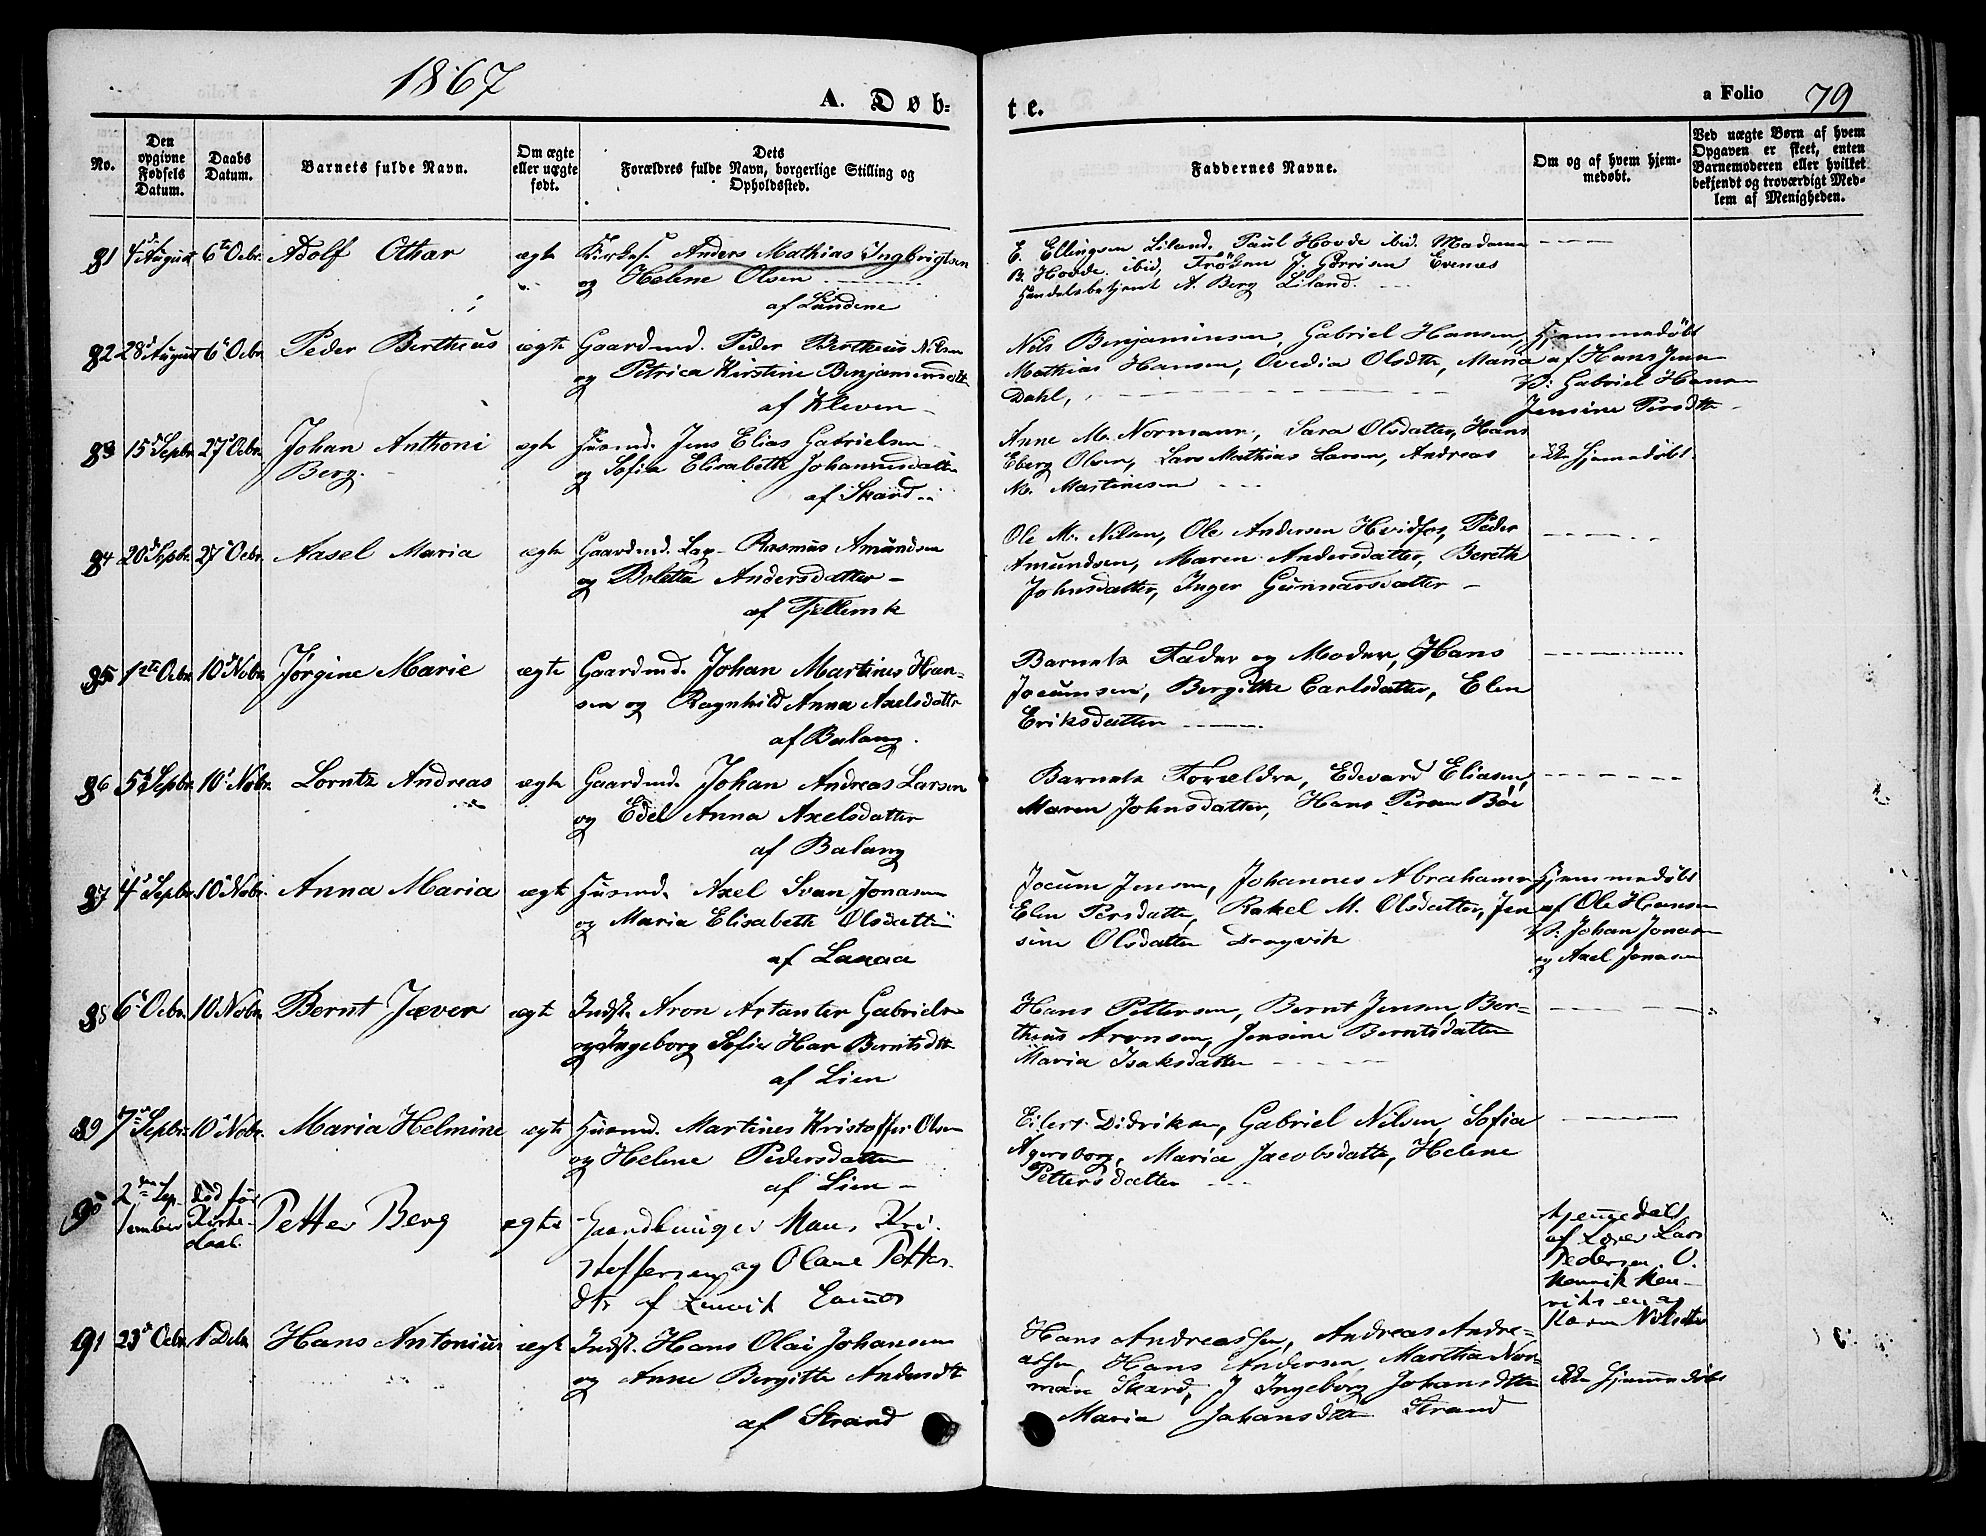 1867
A. Døb-
te.
a Folio 79
No.
Den opgivne Fødsels Datum.
Daabs Datum.
Barnets fulde Navn.
Om ægte eller uægte født.
Dets Forældres fulde Navn, borgerlige Stilling og Opholdssted.
Faddernes Navne.
Om og af hvem hjemmedøbt.
Ved uægte Børn af hvem Opgaven er skeet, enten Barnemoderen eller hvilket bekjendt og troværdigt Medlem af Menigheden.
81 4 August 6te Octbr. Adolf Othar ægte Kirkes. Anders Mathias Ingbrigtsen
og Helene Olsen
af Sandene
E. Ellingsen Liland. Paul Hovde ibid. Madame
B. Hovde ibid, Frøken J. Gørrisen Evenes
Handelsbetjent A. Berg Liland.
82 28 August 6 Octbr. Peder Bertheus ægte Gaardmd. Peder Bertheus Nilsen
og Petrica Kirstine Benjaminsdtt
af Kleven
Nils Benjaminsen, Gabriel Hansen,
Mathias Hansen, Ovedia Olsdtt, Maria
Dahl,
Hjemmedøbt
af Hans Jensen
V: Gabriel Hansen
Jensine Persdtt
83 15 Septbr. 27 Octbr. Johan Anthoni
Berg.
ægte Husmd. Jens Elias Gabrielsen
og Sofia Elisabeth Johannesdatter
af Skard
Anne M. Normann, Sara Olsdatter, Hans
Eberg Olsen, Lars Mathias Larsen, Andreas
M. Martinesen
ikke hjemmedøbt
84 20 Septbr. 27 Octbr. Aasel Maria ægte Gaardmd. Lap. Rasmus Amundsen
og Boletta Andersdatter
af Fjellemk
Ole M. Nilsen, Ole Andersen Hvidfos, Peder
Amundsen, Maren Andersdatter, Bereth
Johnsdatter, Inger Gunnarsdatter
85 1ste Octbr. 10 Novbr. Jørgine Marie ægte Gaardmd. Johan Martinus Han-
sen og Ragnhild Anna Axelsdatter
af Balang.
Barnets Fader og Moder, Hans
Jocumsen, Bergithe Carlsdatter, Elen
Eriksdatter
86 5 Septbr. 10 Novbr. Lorntz Andreas ægte Gaardmd. Johan Andreas Larsen
og Edel Anna Axelsdatter
af Balang
Barnets Forældre, Edevard Eliasen,
Maren Johnsdatter, Hans Persen Bøe
87 4 Septbr. 10 Novbr. Anna Maria ægte Husmd. Axel Svan Jonasen
og Maria Elisabeth Olsdatter
af Lanaa
Jocum Jensen, Johannes Abrahams
Elen Persdatter, Rakel M. Olsdatter, Jen
sine Olsdatter Dragvik
Hjemmedøbt
af Ole Hansen
V: Johan Jonasen
og Axel Jonasen
88 6 Octbr. 10 Novbr. Bernt Jæver ægte Indst. Aron Artanter Gabrielsen
og Ingeborg Sofia Har Berntsdtt
af Lien
Hans Pettersen, Bernt Jensen, Ber-
theus Aronsen, Jensine Berntsdatter
Maria Isaksdatter
89 7 Septbr. 10 Novbr. Maria Helmine ægte Husmd. Martines Kristoffer Olsen
og Helene Pedersdatter
af Lien
Eilert Didriksen, Gabriel Nilsen, Sofia
Agersborg, Maria Jacobsdatter, Helene
Pettersdatter
90 2den Sep-
tember
død før
Kirke-
daab.
Petter Berg ægte Gaardbruger Mans Kri-
stoffersen og Olane Petters
dtr af Lenvik Evenes
hjemmedøbt
af Lærer Lars
Pedersen. O.
Henrik Hen-
riksen og
Karen Nilsdtter
91 23 Octbr. 1 Debr. Hans Antonius ægte Indst. Hans Olai Johansen
og Anne Bergitte Andersdtt
af Strand
Hans Andreassen, Andreas Andre-
assen, Hans Andersen, Martha Nor-
man Skard, J Ingeborg Johansdtter
Maria Johansdtter Strand
ikke hjemmedøbt